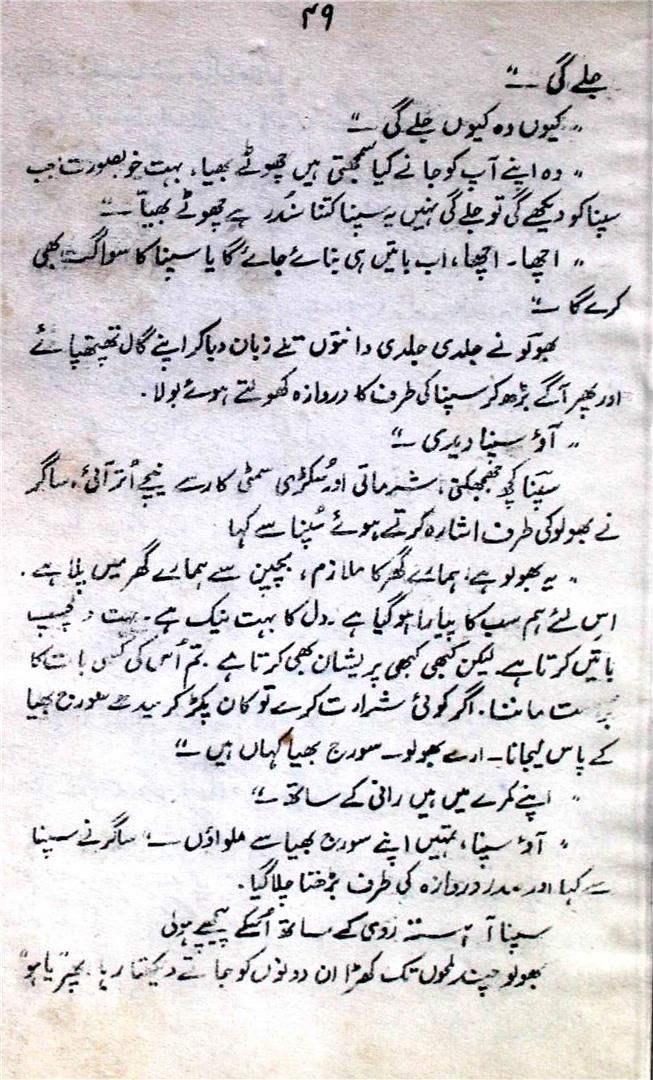 ۴۹
جلے گی ــ"
"کیوں وہ کیوں جلے گی ــ"
"وہ اپنے آپ کو جانے کیا سمجھتی ہیں چھوٹے بھیا، بہت خوبصورت جب
سپنا کو دیکھے گی تو جلے گی نہیں یہ سپنا کتنا سُندر ہے چھوٹے بھیاّ ــ"
"اچھا۔ اچھا، اب باتیں ہی بنائے جائے گا یا سپنا کا سواگت بھی
کرے گا ــ"
بھولو نے جلدی جلدی دانتوں تلے زبان دبا کر اپنے گال تھپتھپائے
اور پھر آگے بڑھ کر سپنا کی طرف کا دروازہ کھولتے ہوئے بولا۔
"آؤ سپنا دیدی ــ"
سپنا کچھ جھجھکتی، شرماتی اور سُکڑی سمٹی کار سے نیچے اُتر آئی، ساگر
نے بھولو کی طرف اشارہ کرتے ہوئے سُپنا سے کہا
"یہ بھولو ہے، ہمارے گھر کا ملازم، بچپن سے ہمارے گھر میں پلا ہے۔
اس لئے ہم سب کا پیارا ہو گیا ہے۔ دل کا بہت نیک ہے۔ بہت دلچسپ
باتیں کرتا ہے لیکن کبھی کبھی پریشان بھی کرتا ہے۔ تم اُس کی کسی بات کا
بُرا مت ماننا۔ اگر کوئی شرارت کرے تو کان پکڑ کر سیدھے سورج بھیا
کے پاس لیجانا۔ ارے بھولو۔ سورج بھیا کہاں ہیں ــ"
"اپنے کمرے میں ہیں رانی کے ساتھ ــ"
"آؤ سپنا، تمہیں اپنے سورج بھیا سے ملواؤں ــ" ساگر نے سپنا
سے کہا اور صدر دروازہ کی طرف بڑھتا چلا گیا۔
سپنا آہستہ روی کے ساتھ اُسکے پیچھے ہولی
بھولو چند لمحوں تک کھڑا ان دونوں کو جاتے دیکھتا رہا۔ پھر "یا ہو"